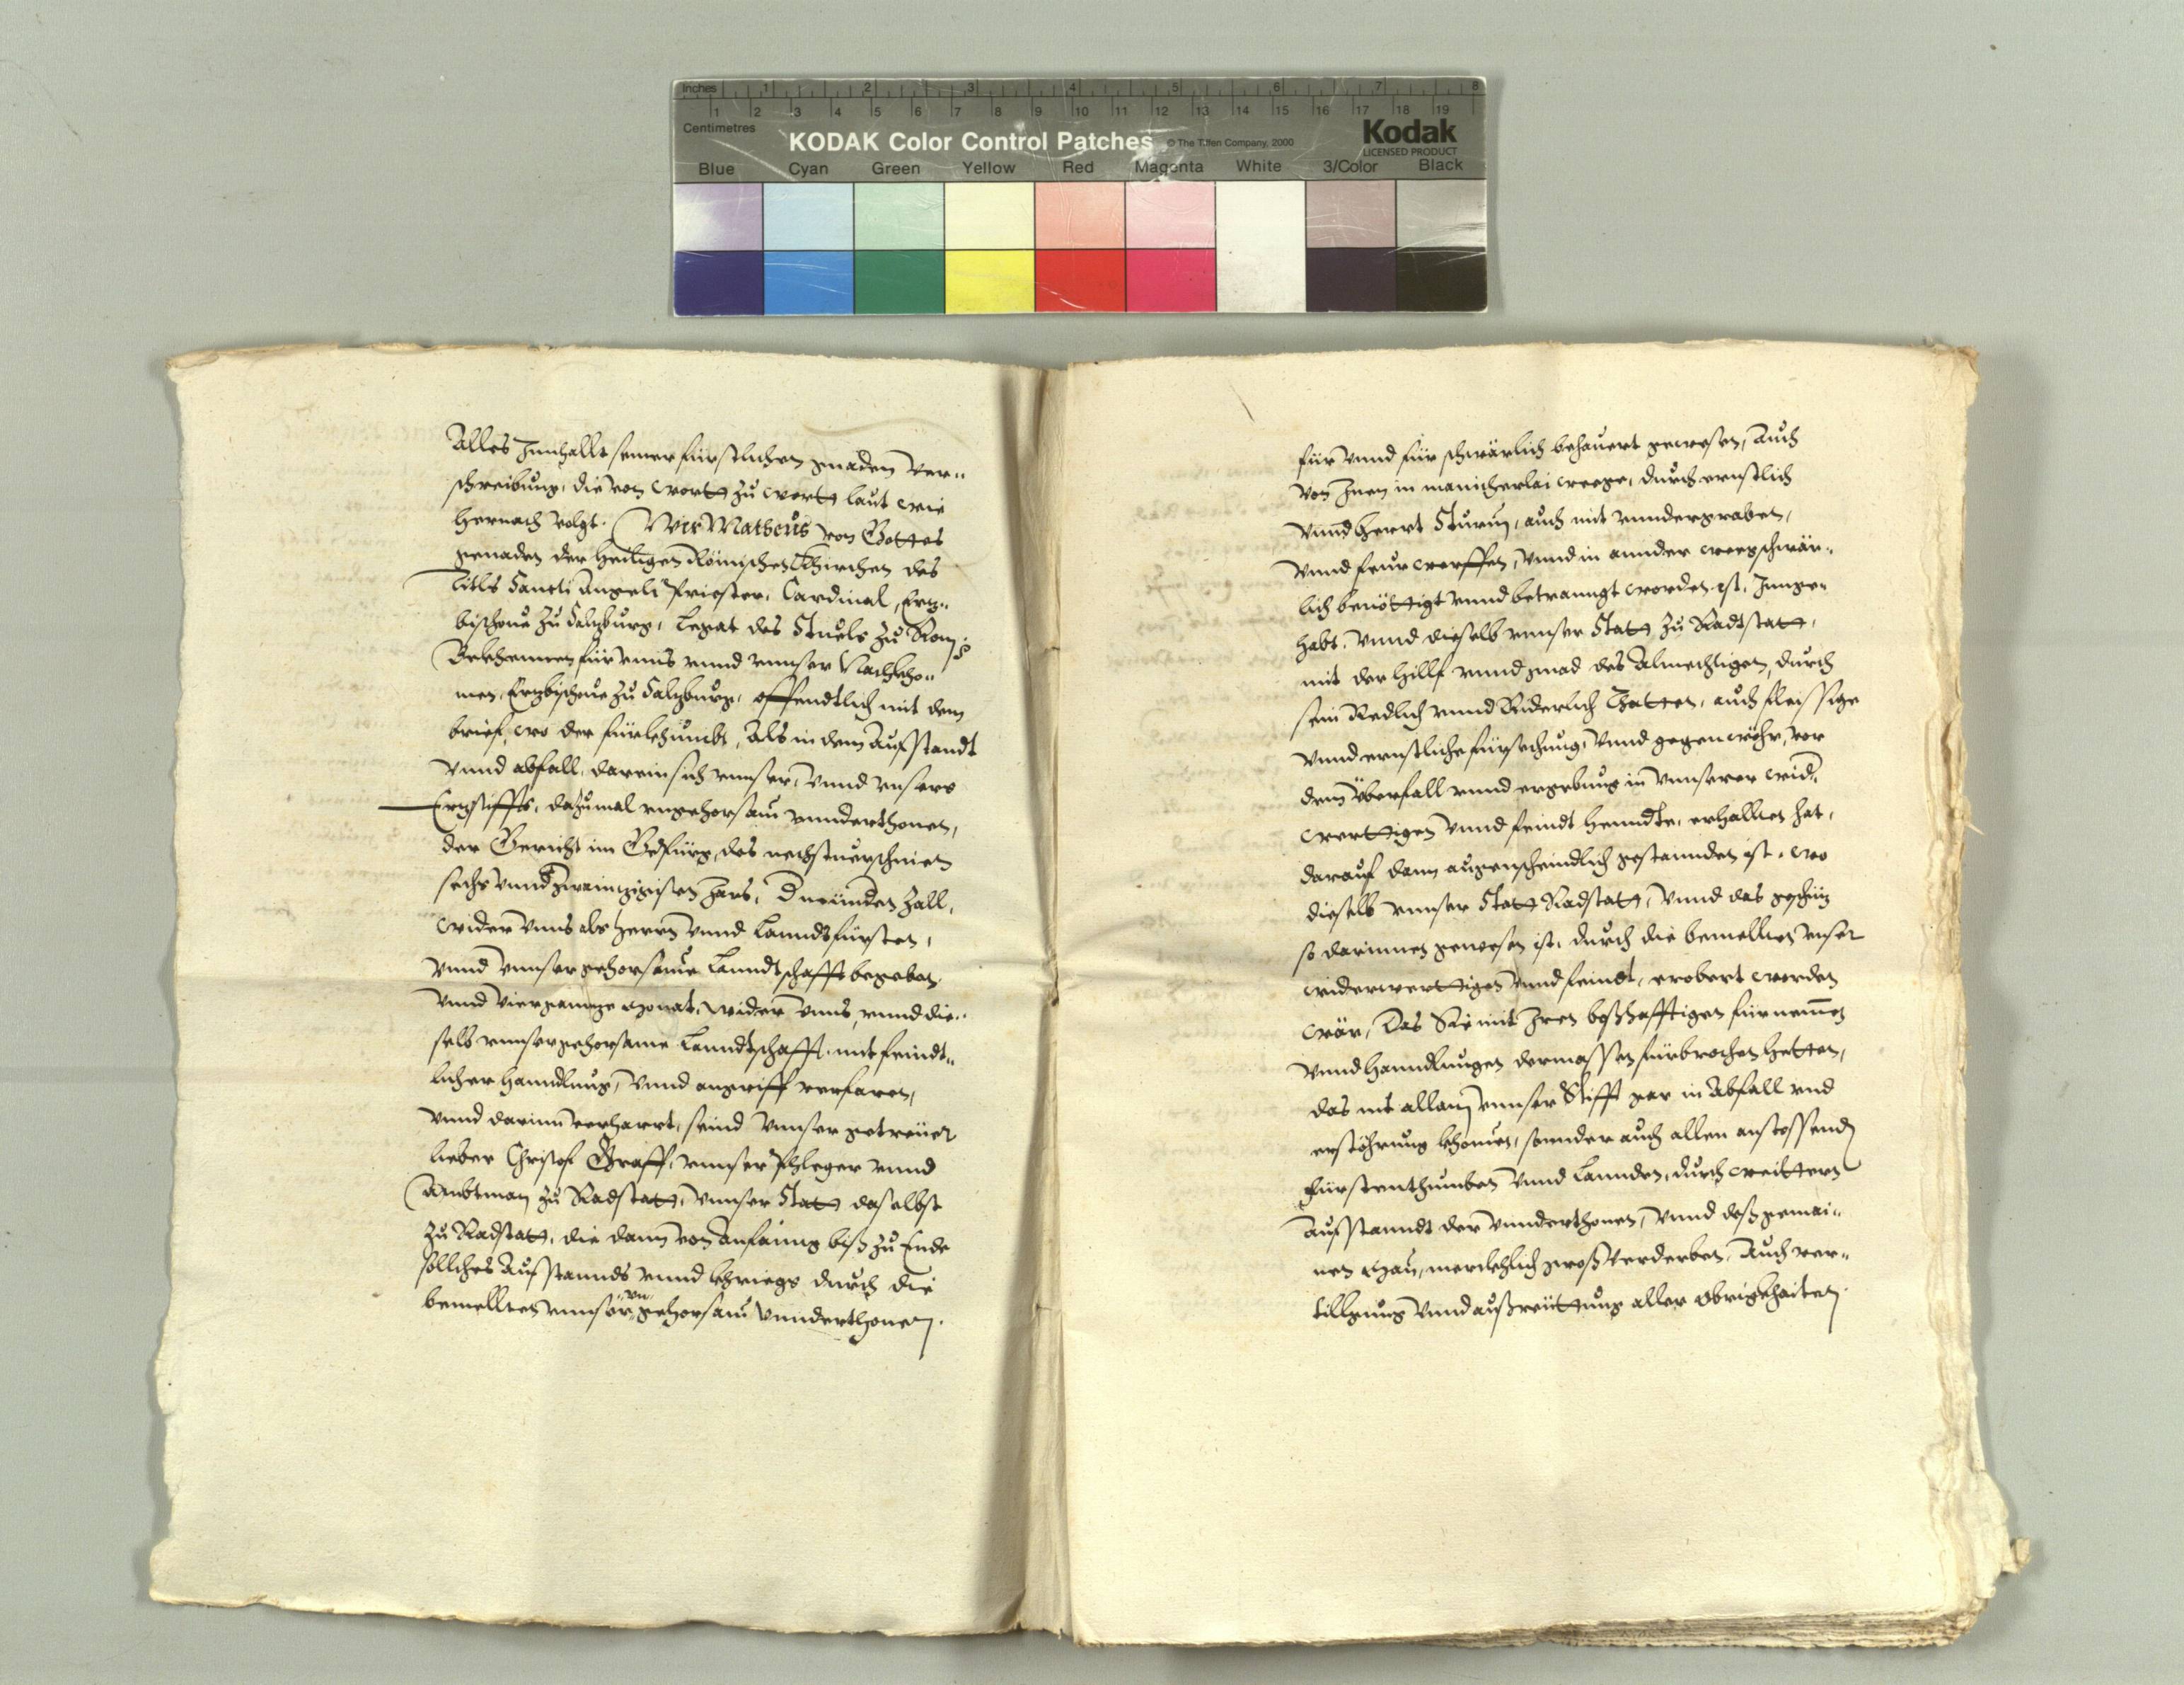 Inches 1 2 3 4 5 6 7 8
1 2 3 4 5 6 7 8 9 10 11 12 13 14 15 16 17 18 19
Centimetres
KODAK Color Control Patches © The Tiffen Company, 2000 Kodak
LICENSED PRODUCT
Blue Cyan Green Yellow Red Magenta White 3/Color Black
Alles Innhallt seiner fürstlichen gnaden Ver„
schreibung, die von wortt zu wortt laut wie
hernach volgt. Wir Matheus von Gottes
genaden der heiligen Römischen Khirchen des
Titls Sancti Angeli Priester, Cardinal, Ertz„
bischoue zu Saltzburg, Legat des Stuels zu Rom
Bekhennen für vnns vnnd vnnser Nachkho„
men, Ertzbischoue zu Saltzburg, offenndtlich mit dem
brief, wo der fürkhumbt, Als in dem Aufstandt
vnnd abfall, darein sich vnnser, vnnd vnsers
Ertzstiffts, dazumal vngehorsam vnnderthonen,
der Gericht im Gebürg, des nechstuerschinen
sechs vnnd zwaintzigisten Jars, Dmündern Zall,
wider vnns als herrn vnnd Lanndsfürsten,
vnnd vnnser gehorsame Lanndtschafft begeben
vnnd vier gantze monat, wider vnns, vnnd die„
selb vnnser gehorsame Lanndtschafft, mit feindt„
licher hanndlung, vnnd angriff verfaren,
vnnd darinn verharrt, seind vnnser getreüer
lieber Christof Graff, vnnser Phleger vnnd
Ambtman zu Radstatt, vnnser Statt daselbst
zu Radstatt, die dann von Anfanng biß zu Ende
sollches Aufstannds vnnd khriegs durch die
bemellten vnnser „vn„ gehorsam vnnderthonen.
für vnnd für schwärlich behauert gewesen, Auch
von Inen in manicherlai weege, durch ernstlich
vnnd herrt Sturm, auch mit vnndergraben,
vnnd feur werffen, vnnd in annder weeg schwär„
lich benöttigt vnnd betranngt worden ist, Innge„
habt. Vnnd dieselb vnnser Statt zu Radtstatt,
mit der hillf vnnd gnad des Almechtigen, durch
sein Redlich vnnd Riderlich Thatten, auch fleissige
vnnd ernstliche fürsechung, vnnd gegenwöhr, vor
dem überfall vnnd ergebung in vnnserer wid„
werttigen vnnd feindt henndte, erhallten hat,
darauf dann augenscheindlich gestannden ist, wo
dieselb vnnser Statt Radstatt, vnnd das geschütz
so darinnen gewesen ist, durch die bemellten vnser
widerwerttigen vnnd feindt, erobert worden
wär, Das Sie mit Iren boßhafftigen fürnemen
vnnd hanndlungen dermassen fürbrochen hetten,
das nit allain vnnser Stifft gar in Abfall vnd
erstöhrung khomen, sonnder auch allen anstossenden
fürstenthumben vnnd Lannden, durch weittern
Aufstanndt der vnnderthonen, vnnd deß gemai„
nen Man, merckhlich groß Verderben, Auch ver„
tillgung vnnd außreüttung aller obrigkhaiten.